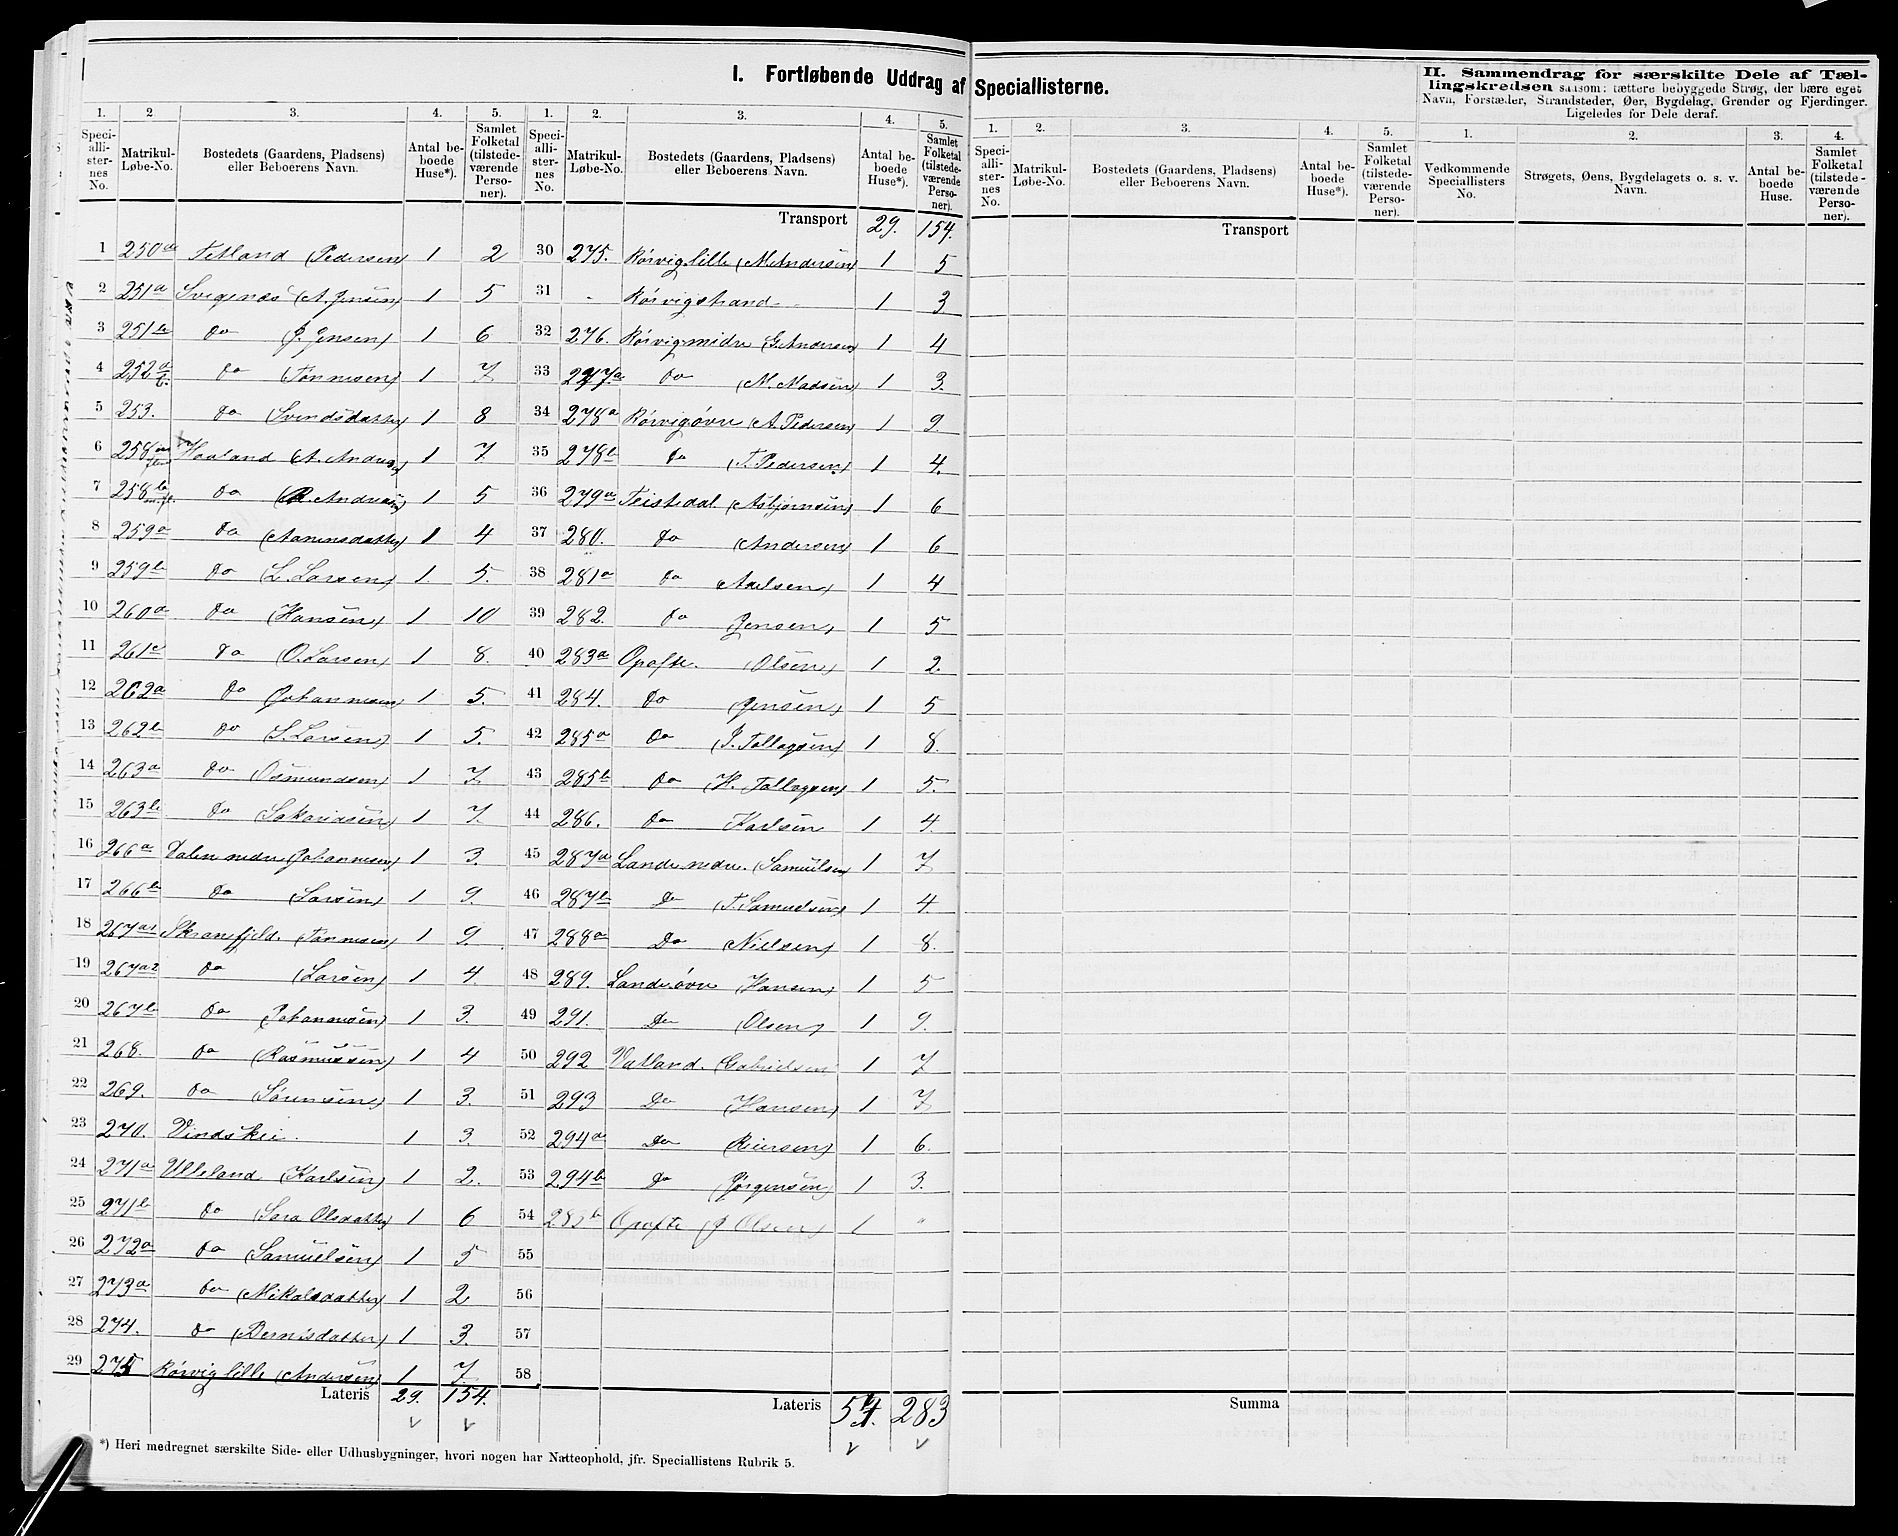 I. Fortløbende Uddrag af Speciallisterne.
II. Sammendrag for særskilte Dele af Tæl-
lingskredsen saasom: tættere bebyggede Strøg, der bære eget
Navn, Forstæder, Strandsteder, Øer, Bygdelag, Grender og Fjerdinger.
Ligeledes for Dele deraf.
1. 2. 3. 4. 5.
Speci-alli-ster-nes No. Matrikul-Løbe-No. Bostedets (Gaardens, Pladsens) eller Beboerens Navn. Antal be-boede Huse*). Samlet Folketal (tilstede-værende Perso-ner).
1 250a Tetland (Pedersen) 1 2
2 251a Svegenæs (A. Jensen) 1 5
3 251b do (J. Jensen) 1 6
4 252a b. do (Tønnesen) 1 7
5 253. do (Svendsdatter) 1 8
6 258 Haaland (A. Andreasen) 1 7
7 258b m.fl. do (R. Andreasen) 1 5
8 259a do (Aanensdatter) 1 4
9 259b do (L. Larsen) 1 5.
10 260a do (Hansen) 1 10
11 261c do (O. Larsen) 1 8.
12 262a do (Johannesen) 1 5.
13 262b do (S. Larsen) 1 5.
14 263a do (Osmundsen) 1 7
15 263b do (Sakariasen) 1 7.
16 266a Dalen nedre (Johannesen) 1 3.
17 266b do (Larsen) 1 9.
18 267a1 Skranefjeld. (Tønnesen) 1 9.
19 267a2 do (Larsen) 1 4.
20 267b do (Johannesen) 1 3.
21 268. do (Rasmussen) 1 4
22 269. do (Sørensen) 1 3.
23 270. Vindskei. 1 3.
24 271a Ulleland (Karlsen) 1 2.
25 271b do (Sara Olsdatter) 1 6
26 272a do (Samuelsen) 1 5
27 273a do (Mikalsdatter) 1 2
28 274. do (Berntsdatter) 1 3.
29 275 Rørvig lille (Andersen) 1 7.
Lateris 29. 154.
1. 2. 3. 4. 5.
Speci-alli-ster-nes No. Matrikul-Løbe-No. Bostedets (Gaardens, Pladsens) eller Beboerens Navn. Antal be-boede Huse*). Samlet Folketal (tilstede-værende Perso-ner).
Transport 29. 154.
30 275. Rørvig lille (M. Andersen) 1 5
31 - Rørvigstrand 1 3
32 276. Rørvigmidre (G. Andersen) 1 4
33 277a do (M. Madsen) 1 3.
34 278a Rørvigøvre (A. Pedersen) 1 9.
35 278b do (T. Pedersen) 1 4.
36 279a Teistedal (Asbjørnsen) 1 6
37 280. do (Andersen) 1 6
38 281a do (Axelsen) 1 4
39 282. do (Jensen) 1 5
40 283a Opofte. (Olsen) 1 2.
41 284. do (Jensen) 1 5
42 285a do (J. Tollagsen) 1 8.
43 285b do (H. Tollagsen) 1 5.
44 286. do Karlsen 1 4.
45 287a Lande nedre. (Samuelsen) 1 7
46 287b Do (T. Samuelsen) 1 4.
47 288a Do (Nielsen) 1 8.
48 289. Lande øvre (Hansen) 1 5
49 291. Do (Olsen) 1 9.
50 292 Vatland. (Gabrielsen 1 7
51 293 Do (Hansen) 1 7
52 294a Do (Reiersen) 1 6.
53 294b Do (Jørgensen) 1 3.
54 283b Opofte (J Olsen) 1 "
55
56
57
58
Lateris 54. 283
*) Heri medregnet særskilte Side- eller Udhusbygninger, hvori nogen har Natteophold, jfr. Speciallistens Rubrik 5.
1. 2. 3. 4. 5.
Speci-alli-ster-nes No. Matrikul-Løbe-No. Bostedets (Gaardens, Pladsens) eller Beboerens Navn. Antal be-boede Huse*). Samlet Folketal (tilstede-værende Perso-ner).
Transport
Summa
1. 2. 3. 4.
Vedkommende Speciallisters No. Strøgets, Øens, Bygdelagets o. s. v. Navn. Antal be-boede Huse. Samlet Folketal (tilstede-værende Perso-ner).